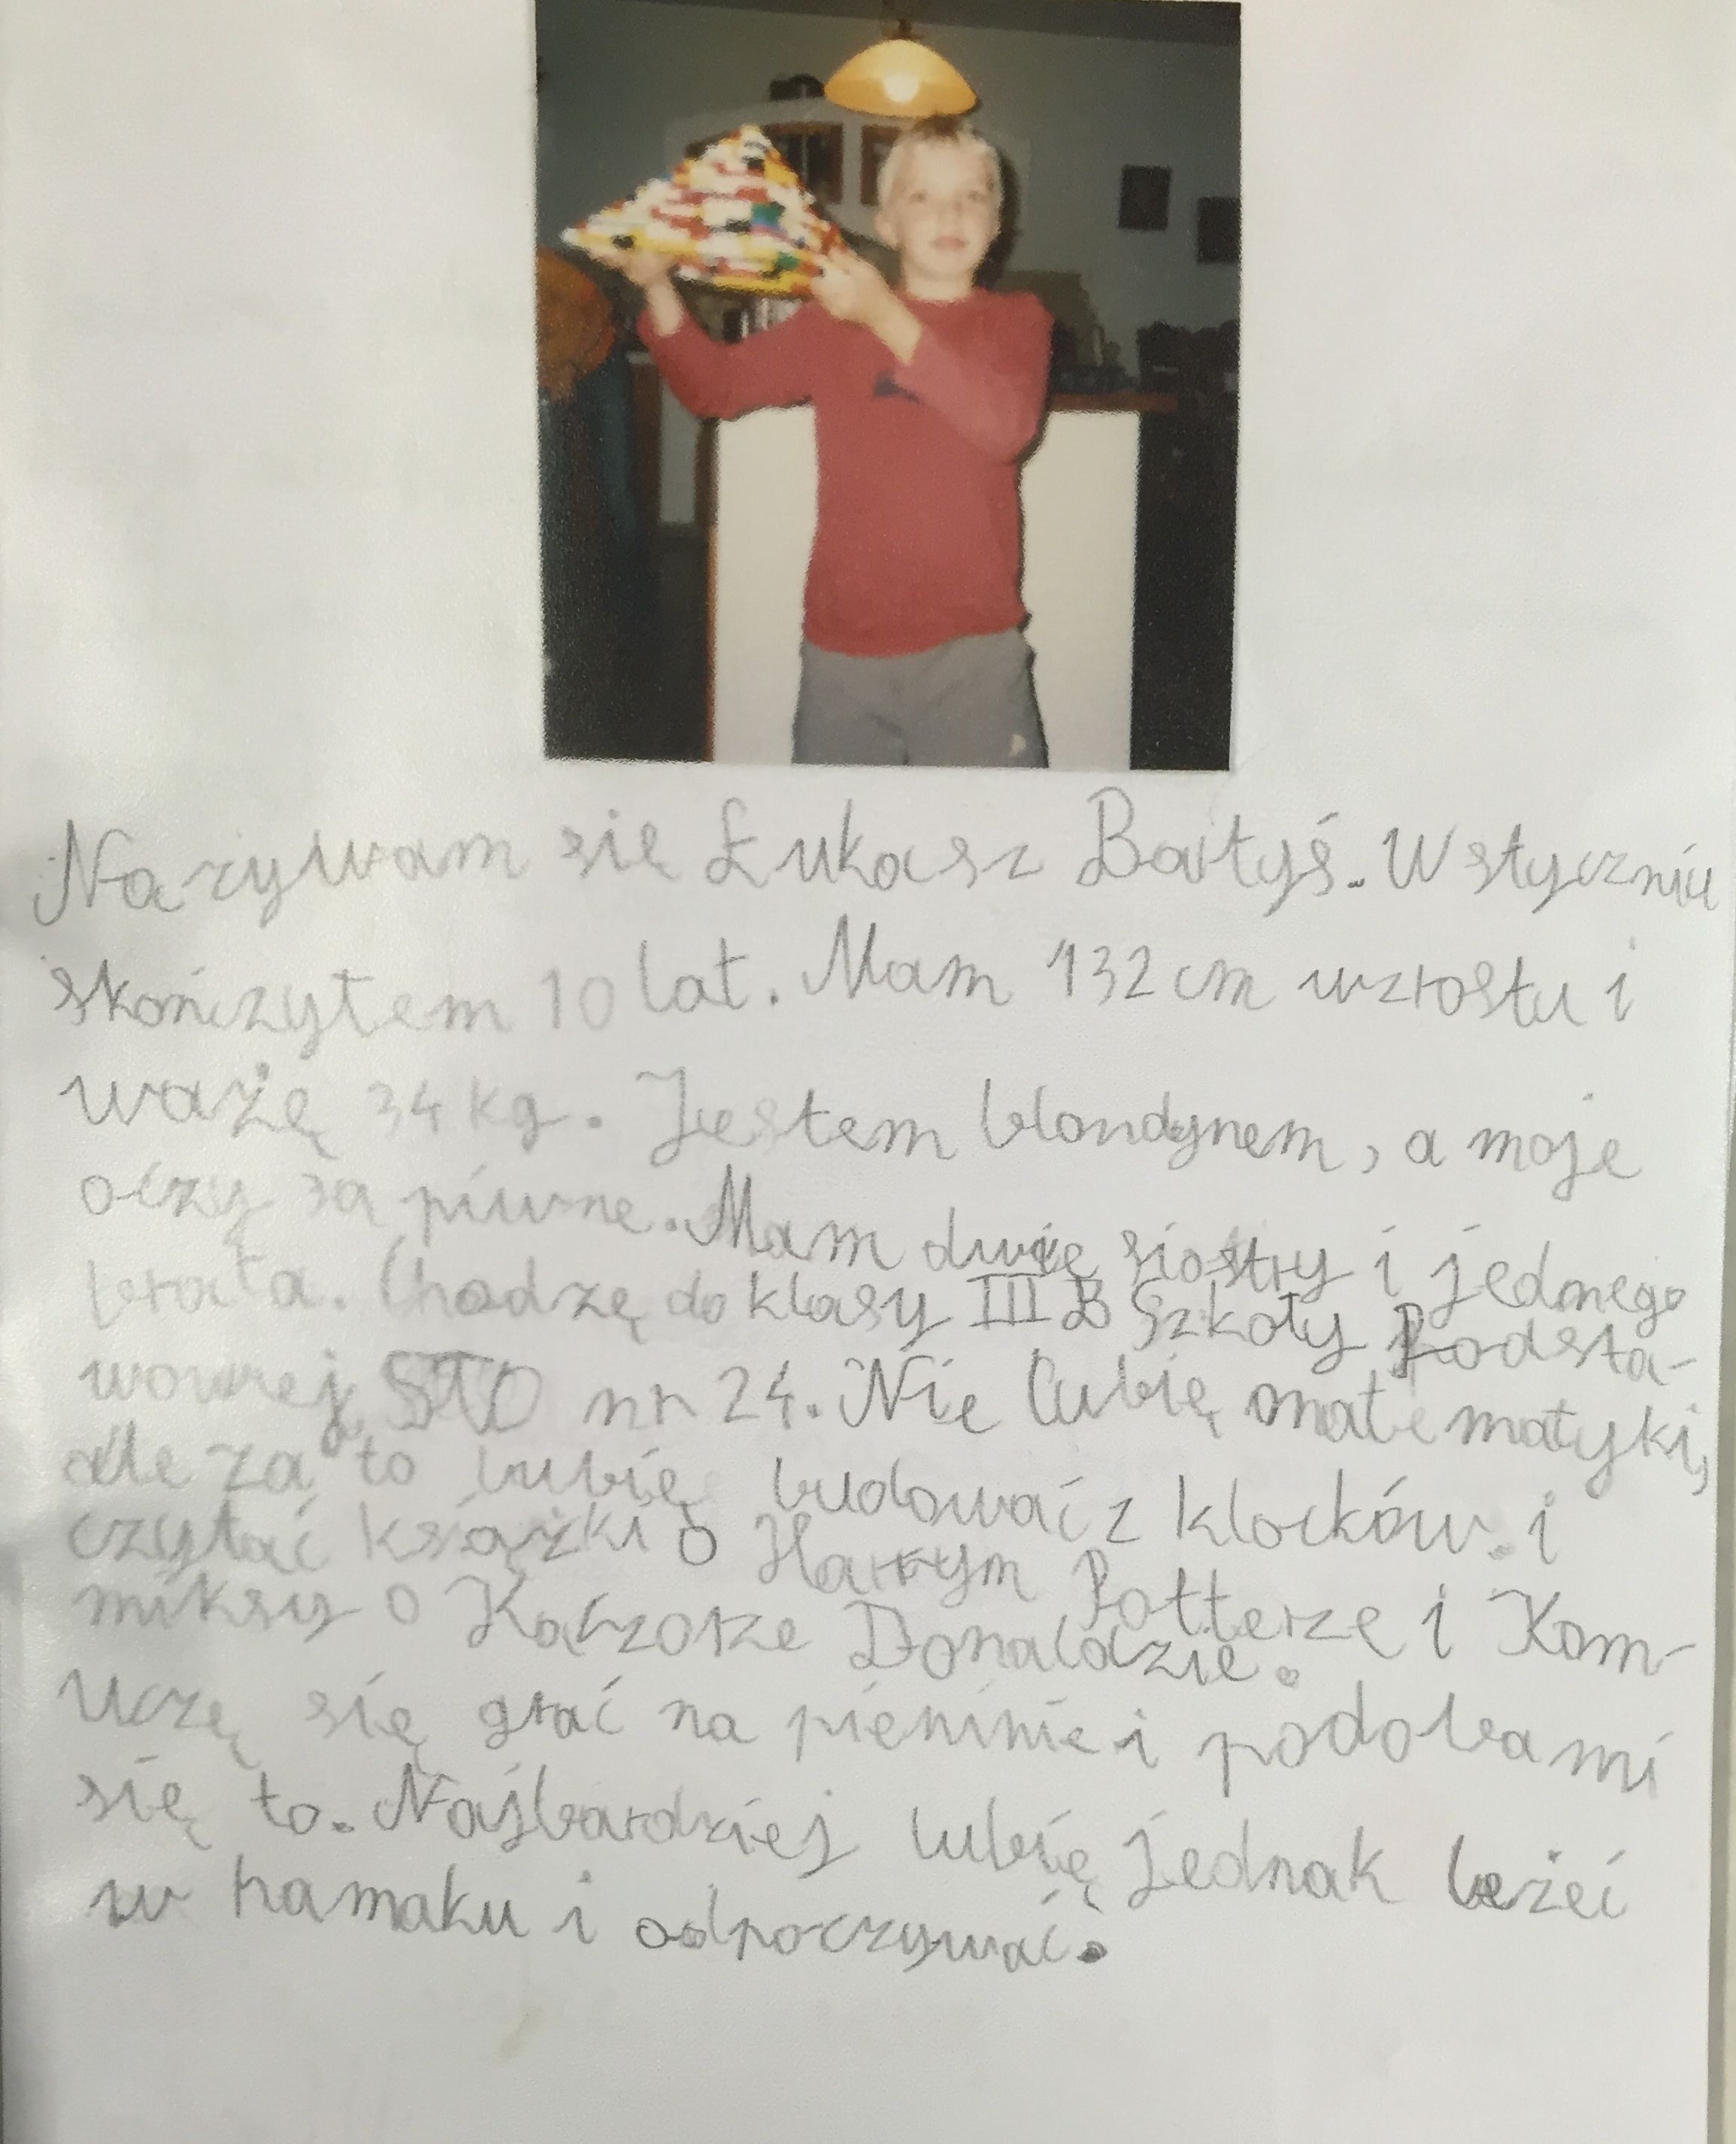 Nazywam się Łukasz Bartyś. W styczniu
skończyłem 10 lat. Mam 132 cm wzrostu i
ważę 34 kg. Jestem blondynem, a moje
oczy są piwne. Mam dwie siostry i jednego
brata. Chodzę do klasy III B Szkoły Podsta-
wowej STO nr 24. Nie lubię matematyki,
ale za to lubię budować z klocków i
czytać książki o Harrym Potterze i Kom-
miksy o Kaczorze Donaldzie.
Uczę się grać na pieninie i podobami
się to. Najbardziej lubię jednak leżeć
w hamaku i odpoczywać.